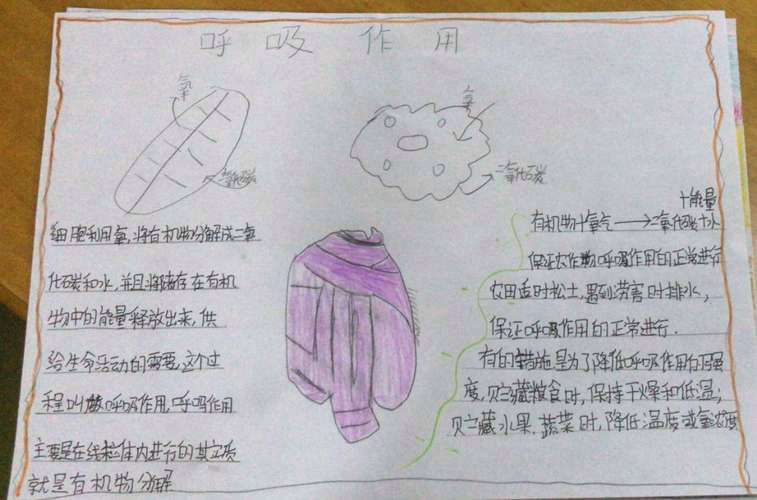 呼吸作用
氧
二氧化碳
氧
二氧化碳
细胞利用氧,将有机物分解成二氧
化石炭和水,并且将储存在有机
物中的能量释放出来,供
给生命活动的需要,这个过
程叫做呼吸作用,呼吸作用
主要是在线粒体内进行的其实质
就是有机物分解
十能量
有机物十氧气→二氧化碳十水
保证农作物呼吸作用的正常进行
农田适时松土,遇到涝害时排水,
保证呼吸作用的正常进行.
有的措施是为了降低呼吸作用的强
度,贮藏粮食时,保持干燥和低温;
贮藏水果、蔬菜时,降低温度或氧浓度